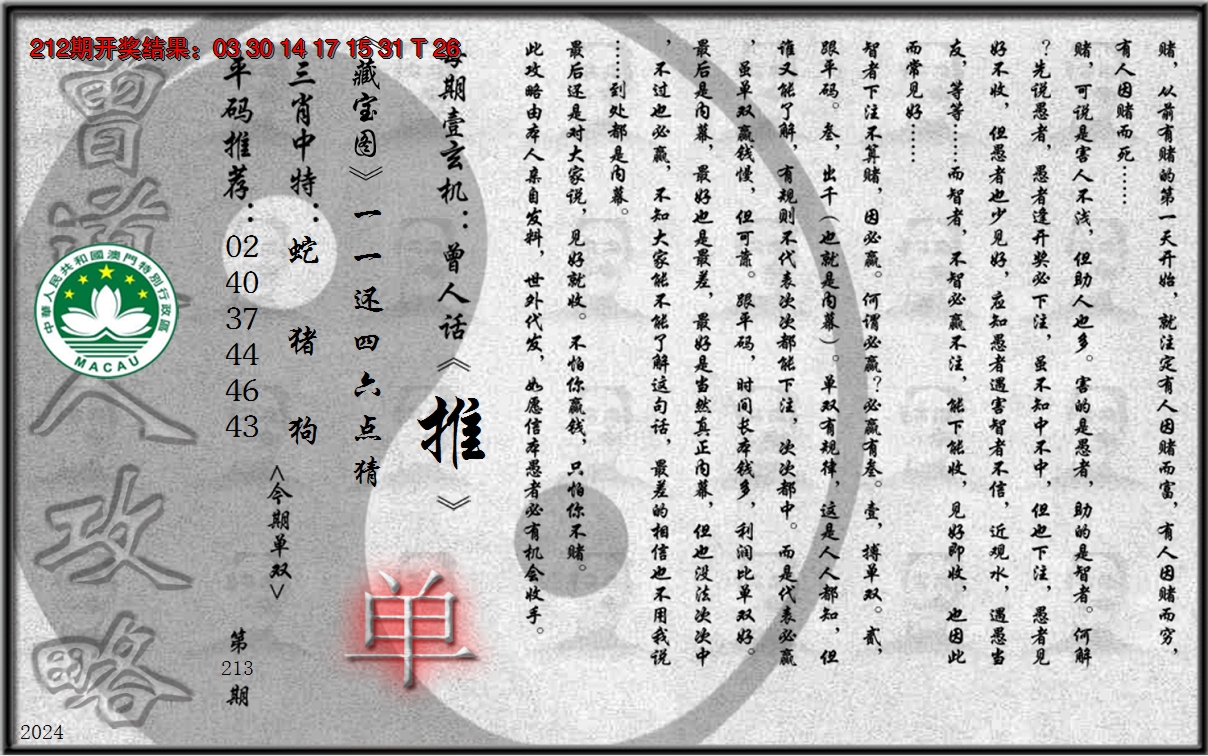 212期开奖结果：03 30 14 17 15 31 T 26
赌，从前有赌的第一天开始，就注定有人因赌而富，有人因赌而穷，
有人因赌而死……
赌，可说是害人不浅，但助人也多。害的是愚者，助的是智者。何解
？先说愚者，愚者逢开奖必下注，虽不知中不中，但也下注，愚者见
好不收，但愚者也少见好，应知愚者遇害智者不信，近观水，遇愚当
友，等等……而智者，不智必赢不注，能下能收，见好即收，也因此
而常见好……
智者下注不算赌，因必赢。何谓必赢？必赢有叁。壹，搏单双。贰，
跟平码。叁，出千（也就是内幕）。单双有规律，这是人人都知，但
谁又能了解，有规则不代表次次都能下注，次次都中。而是代表必赢
，虽单双赢钱慢，但可靠。跟平码，时间长本钱多，利润比单双好。
最后是内幕，最好也是最差，最好是当然真正内幕，但也没法次次中
，不过也必赢，不知大家能不能了解这句话，最差的相信也不用我说
……到处都是内幕。
最后还是对大家说，见好就收。不怕你赢钱，只怕你不赌。
此攻略由本人亲自发料，世外代发，如愿信本愚者必有机会收手。
每期壹玄机：曾人话《推》
《藏宝图》一一还四六点猜
单
三肖中特：蛇 猪 狗
<今期单双>
平码推荐：02 40 37 44 46 43
第213期
曾道人攻略
中華人民共和國澳門特別行政區
MACAU
2024